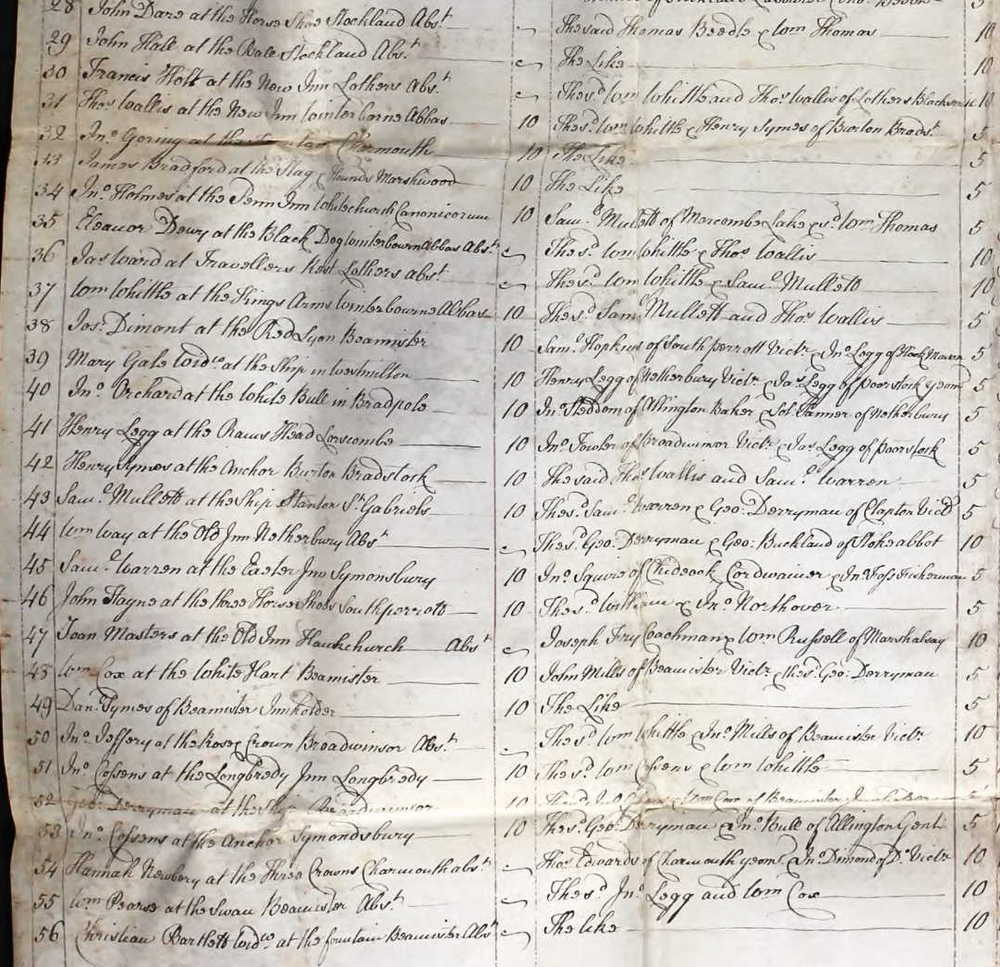 28 John Dare at the Horse Shoe Stockland Abst
29 John Hall at the Bale Stockland Abst. The said Thomas Beedle & Wm Thomas 10
30 Francis Holt at the New Inn Lothers Abst. The Like 10
31 Thos Wallis at the New Inn Winterborne Abbas The sd Wm Whittle and Thos Wallis of Lothers 10
32 Jno Goring at the Charmouth 10 The sd Wm Whittle & Henry Symes of Burton Bradst. 5
33 James Bradford at the Stag & Hounds Marshwood 10 The Like 5
34 Jno Holmes at the Penn Inn Whitechurch Canonicorum 10 The Like 5
35 Eleanor Dewy at the Black Dog Winterbourn Abbas Abst. 10 Saml Mullett of Morcombe Lake & sd Wm Thomas 5
36 Jas Ward at Travellers Rest Lothers abst. The sd Wm Whittle & Thos Wallis 10
37 Wm Whittle at the Kings Arms Winterbourne Abbas The sd Wm Whittle & Saml Mullett 10
38 Jos. Dimont at the Red Lyon Beamister 10 The sd Saml Mullett and Thos Wallis 5
39 Mary Gale Widco at the Ship in Westmilton 10 Saml Hopkins of South perrott Victr & Jno Legg of 5
40 Jno Orchard at the White Bull in Bradpole 10 Henry Legg of Netherbury Victr & Jas Legg of Poorstock yeom 5
41 Henry Legg at the Rams Head Loscombe 10 Jno Steddom of Allington Baker & Sol Farmer of Netherbury 5
42 Henry Symes at the Anchor Burton Bradstock 10 Jno Fowler of Broadwinsor Victr & Jas Legg of Poorstock 5
43 Saml Mullett at the Ship Stanton St Gabriels 10 The said Thos Wallis and Saml Warren 5
44 Wm Way at the Old Inn Netherbury Abst 10 The sd Saml Warren & Geo: Derryman of Clapton Victr 5
45 Saml Warren at the Easter Inn Symonsbury The sd Geo: Derryman & Geo: Buckland of Stoke abbot 10
46 John Hayne at the three Horse Shoes South perrott 10 Jno Squire of Chideock Cordwainer & Jno Foss Fisherman 5
47 Joan Masters at the Old Inn Hawkchurch Abst 10 The sd William & Jno Northover 5
48 Wm Cox at the White Hart Beamister Joseph Fry Coachman & Wm Russell of Marshalsay 10
49 Danl Symes of Beamister Innholder 10 John Mills of Beamister Victr & the sd Geo: Derryman 5
50 Jno Jeffery at the Rose & Crown Broadwinsor Abst. 10 The Like 5
51 Jno Cosens at the Longbredy Inn Longbredy The sd Wm Whittle & Jno Mills of Beamister Victr 10
52 Geo: Derryman at the Ship Broadwinsor 10 The sd Wm Cosens & Wm Whittle 5
53 Jno Cosens at the Anchor Symondsbury 10 Wm Cox of Beamister 5
54 Hannah Newbery at the Three Crowns Charmouth abst 10 The sd Geo: Derryman & Jno Bull of Allington Gent 5
55 Wm Pearse at the Swan Beamister Abst. Thos Edwards of Charmouth yeom & Jno Dimond of Do Victr 10
56 Christian Bartlett Widco at the fountain Beamister Abst The sd Jno Legg and Wm Cox 10
The like 10